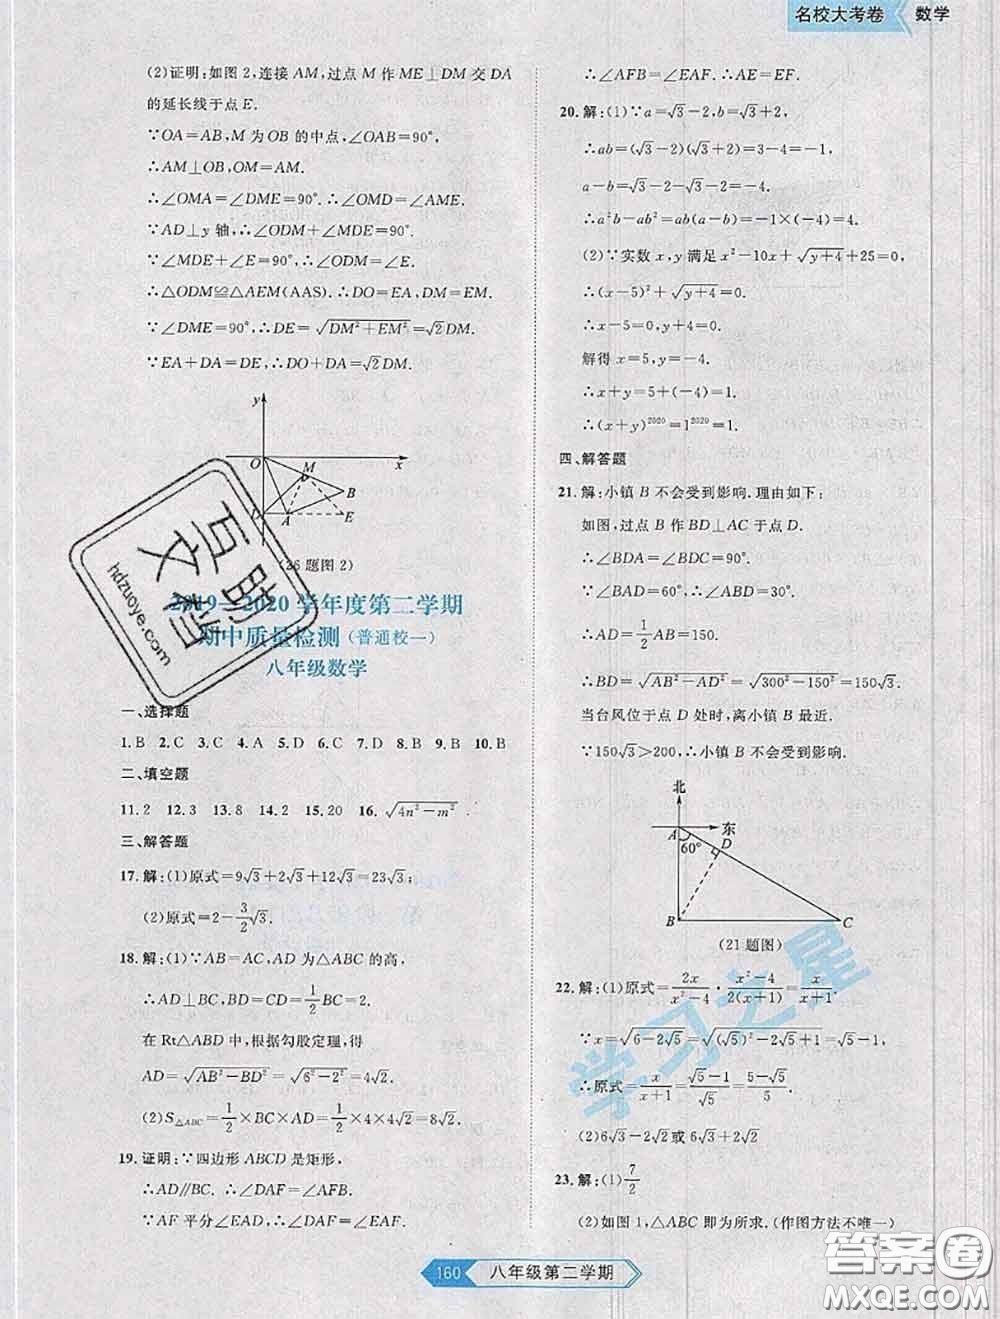 名校大考卷 数学
(2)证明:如图2,连接AM,过点M作ME⊥DM交DA
的延长线于点E.
∵OA=AB,M为OB的中点,∠OAB=90°,
∴AM⊥OB,OM=AM.
∴∠OMA=∠DME=90°.∴∠OMD=∠AME.
∵AD⊥y轴,∴∠ODM+∠MDE=90°.
∵∠MDE+∠E=90°,∴∠ODM=∠E.
∴△ODM≌△AEM(AAS).∴DO=EA,DM=EM.
∵∠DME=90°,∴DE=√(DM²+EM²)=√2DM.
∵EA+DA=DE,∴DO+DA=√2DM.
y
O
M
x
B
D
A
E
(26题图2)
2019—2020学年度第二学期
期中质量检测(普通校一)
八年级数学
一、选择题
1.B 2.C 3.C 4.A 5.D 6.C 7.D 8.B 9.B 10.B
二、填空题
11.2 12.3 13.8 14.2 15.20 16.√(4n²-m²)
三、解答题
17.解:(1)原式=9√3+2√3+12√3=23√3;
(2)原式=2-3/2√3.
18.解:(1)∵AB=AC,AD为△ABC的高,
∴AD⊥BC,BD=CD=1/2BC=2.
在Rt△ABD中,根据勾股定理,得
AD=√(AB²-BD²)=√(6²-2²)=4√2.
(2)S△ABC=1/2×BC×AD=1/2×4×4√2=8√2.
19.证明:∵四边形ABCD是矩形,
∴AD∥BC.∴∠DAF=∠AFB.
∵AF平分∠EAD,∴∠DAF=∠EAF.
∴∠AFB=∠EAF.∴AE=EF.
20.解:(1)∵a=√3-2,b=√3+2,
∴ab=(√3-2)(√3+2)=3-4=-1,
a-b=√3-2-√3-2=-4.
∴a²b-ab²=ab(a-b)=-1×(-4)=4.
(2)∵实数x,y满足x²-10x+√(y+4)+25=0,
∴(x-5)²+√(y+4)=0.
∴x-5=0,y+4=0.
解得x=5,y=-4.
∴x+y=5+(-4)=1.
∴(x+y)²⁰²⁰=1²⁰²⁰=1.
四、解答题
21.解:小镇B不会受到影响.理由如下:
如图,过点B作BD⊥AC于点D.
∴∠BDA=∠BDC=90°.
∵∠DAB=60°,∴∠ABD=30°.
∴AD=1/2AB=150.
∴BD=√(AB²-AD²)=√(300²-150²)=150√3.
当台风位于点D处时,离小镇B最近.
∵150√3>200,∴小镇B不会受到影响.
北
东
A
60°
D
B
C
(21题图)
22.解:(1)原式=2x/(x²-4)·(x²-4)/(2(x+1))=x/(x+1).
∵x=√(6-2√5)=√((√5)²-2√5+1)=√5-1,
∴原式=x/(x+1)=(√5-1)/√5=(5-√5)/5.
(2)6√3-2√2或6√3+2√2
23.解:(1)7/2
(2)如图1,△ABC即为所求.(作图方法不唯一)
160 八年级第二学期
互助文档
hdzuoye.com
学习之星
答案圈
MXQE.COM